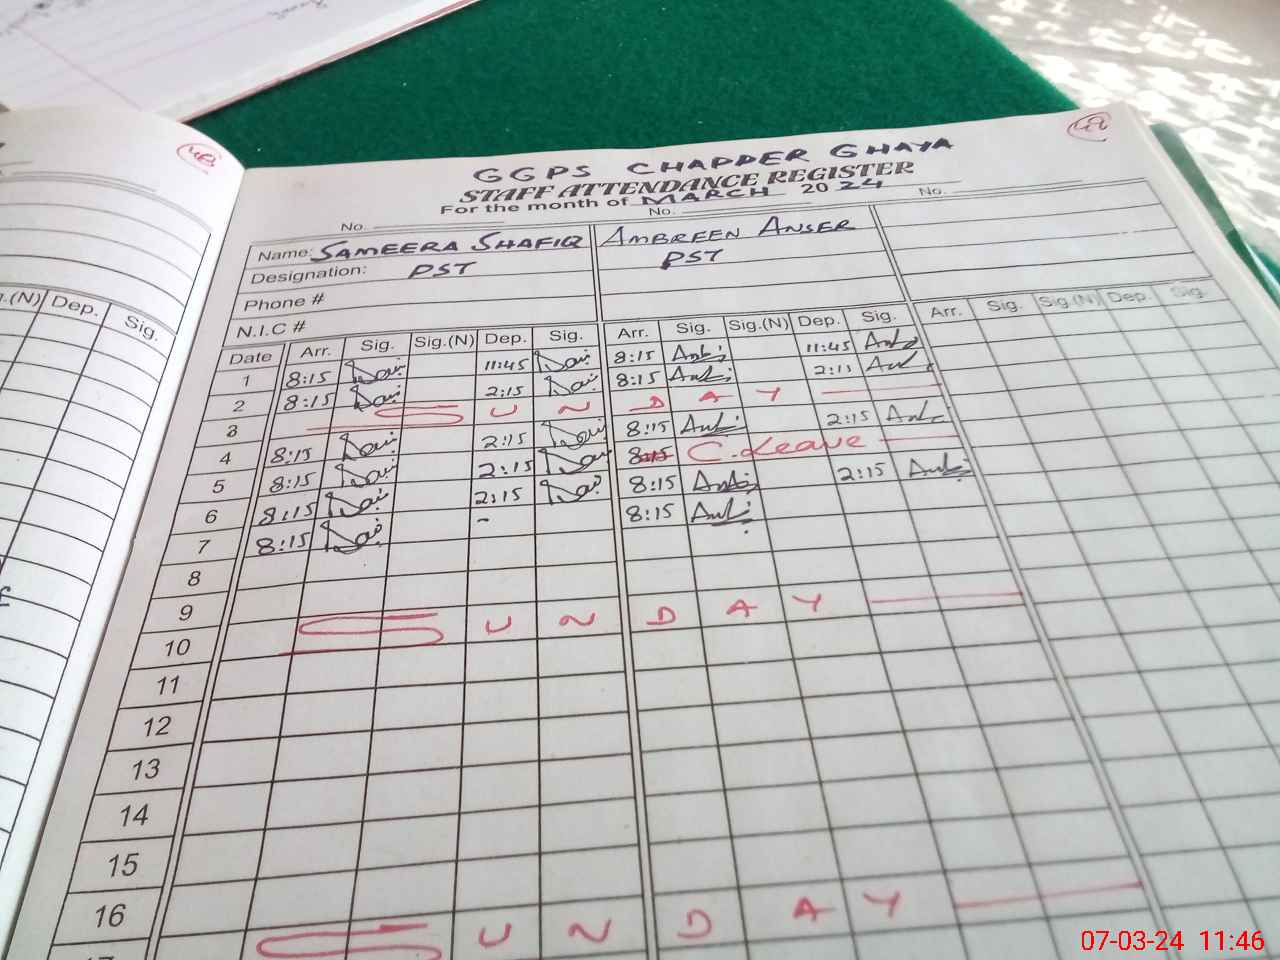 GGPS CHAPPER GHAYA
STAFF ATTENDANCE REGISTER
For the month of MARCH 2024
No. No. No.
Name: SAMEERA SHAFIQ AMBREEN ANSER
Designation: PST PST
Phone #
N.I.C #
g.(N) Dep. Sig.
Date Arr. Sig. Sig.(N) Dep. Sig. Arr. Sig. Sig.(N) Dep. Sig. Arr. Sig. Sig.(N) Dep. Sig.
1 8:15 11:45 8:15 11:45
2 8:15 2:15 8:15 2:15
3 S U N D A Y
4 8:15 2:15 8:15 2:15
5 8:15 2:15 8:15 C. Leave
6 8:15 2:15 8:15 2:15
7 8:15 - 8:15
8
9
10 S U N D A Y
11
12
13
14
15
16
17 S U N D A Y
07-03-24 11:46